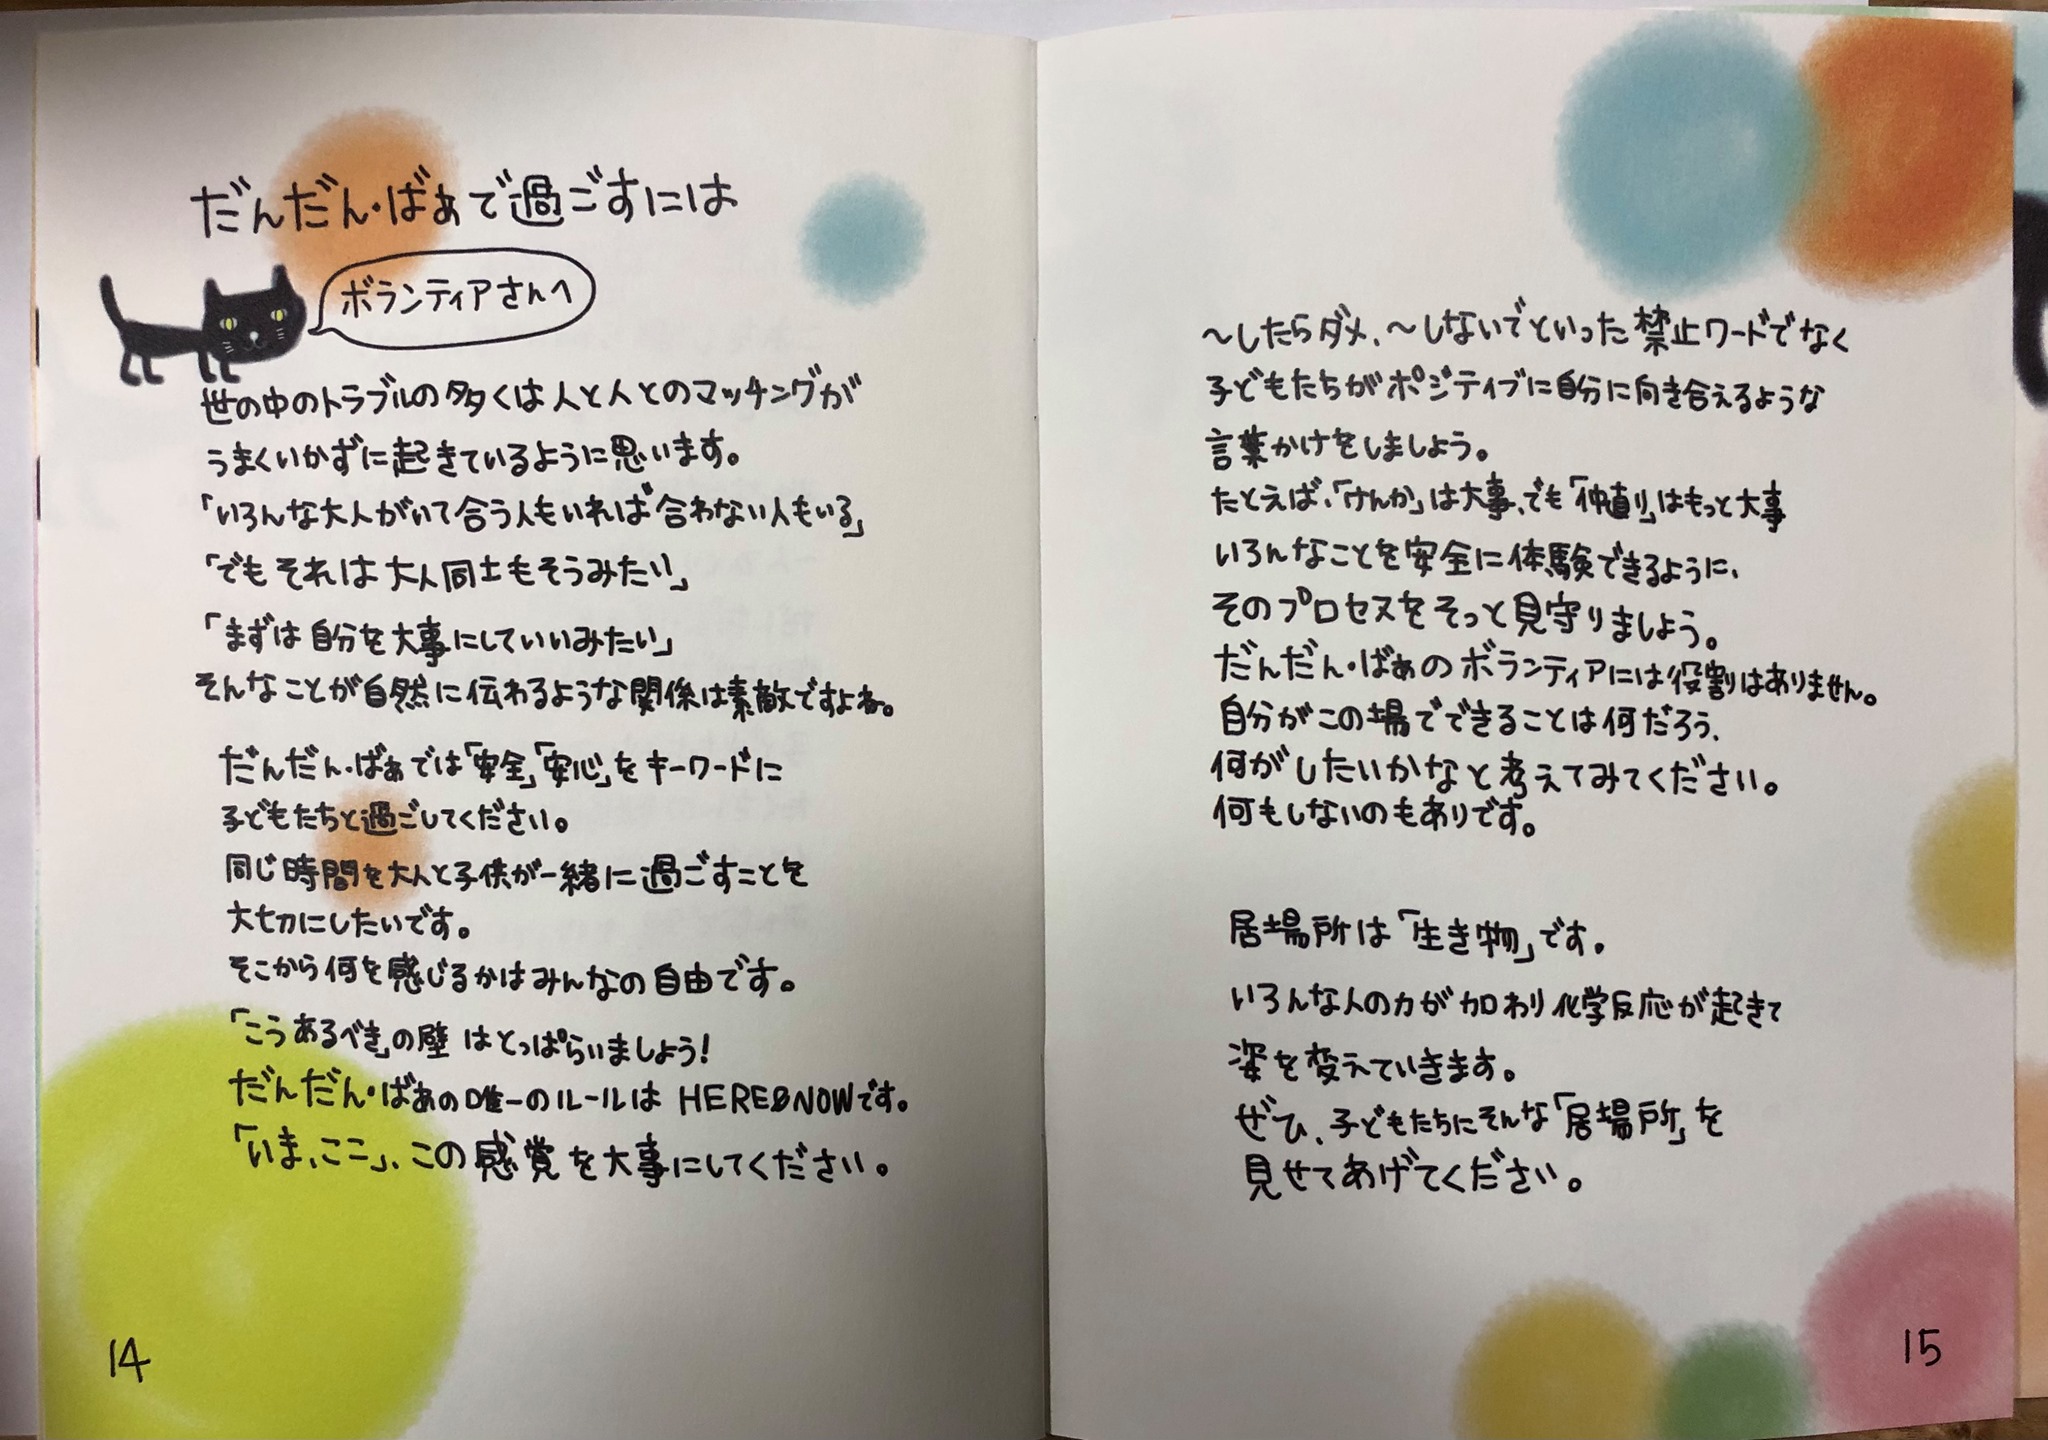 だんだん・ばぁで過ごすには
ボランティアさんへ
世の中のトラブルの多くは人と人とのマッチングが
うまくいかずに起きているように思います。
「いろんな大人がいて合う人もいれば合わない人もいる」
「でもそれは大人同士もそうみたい」
「まずは自分を大事にしていいみたい」
そんなことが自然に伝わるような関係は素敵ですよね。
だんだん・ばぁでは「安全」「安心」をキーワードに
子どもたちと過ごしてください。
同じ時間を大人と子供が一緒に過ごすことを
大切にしたいです。
そこから何を感じるかはみんなの自由です。
「こうあるべき」の壁はとっぱらいましょう!
だんだん・ばぁの唯一のルールは HERE&NOWです。
「いま、ここ」、この感覚を大事にしてください。
14
〜したらダメ、〜しないでといった禁止ワードでなく
子どもたちがポジティブに自分に向き合えるような
言葉かけをしましょう。
たとえば、「けんか」は大事、でも「仲直り」はもっと大事
いろんなことを安全に体験できるように、
そのプロセスをそっと見守りましょう。
だんだん・ばぁのボランティアには役割はありません。
自分がこの場でできることは何だろう、
何がしたいかなと考えてみてください。
何もしないのもありです。
居場所は「生き物」です。
いろんな人の力が加わり化学反応が起きて
姿を変えていきます。
ぜひ、子どもたちにそんな「居場所」を
見せてあげてください。
15